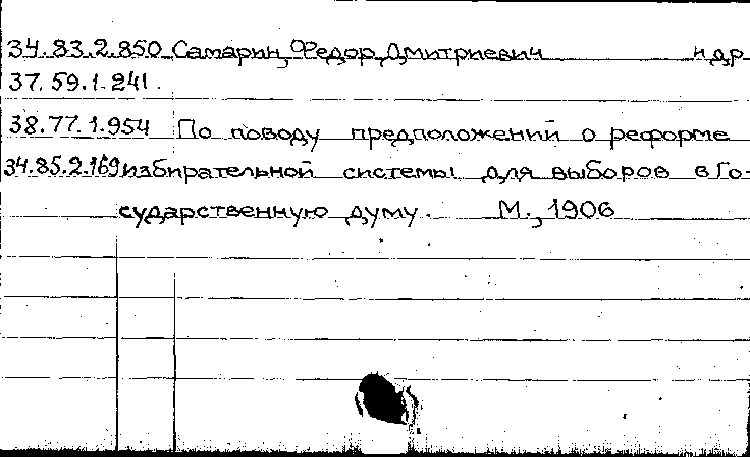 34.83.2.850 Самарин, Федор Дмитриевич и др
37.59.1.241.
38.77.1.954 По поводу предположений о реформе
34.85.2.169 избирательной системы для выборов в Го-
сударственную думу. М., 1906